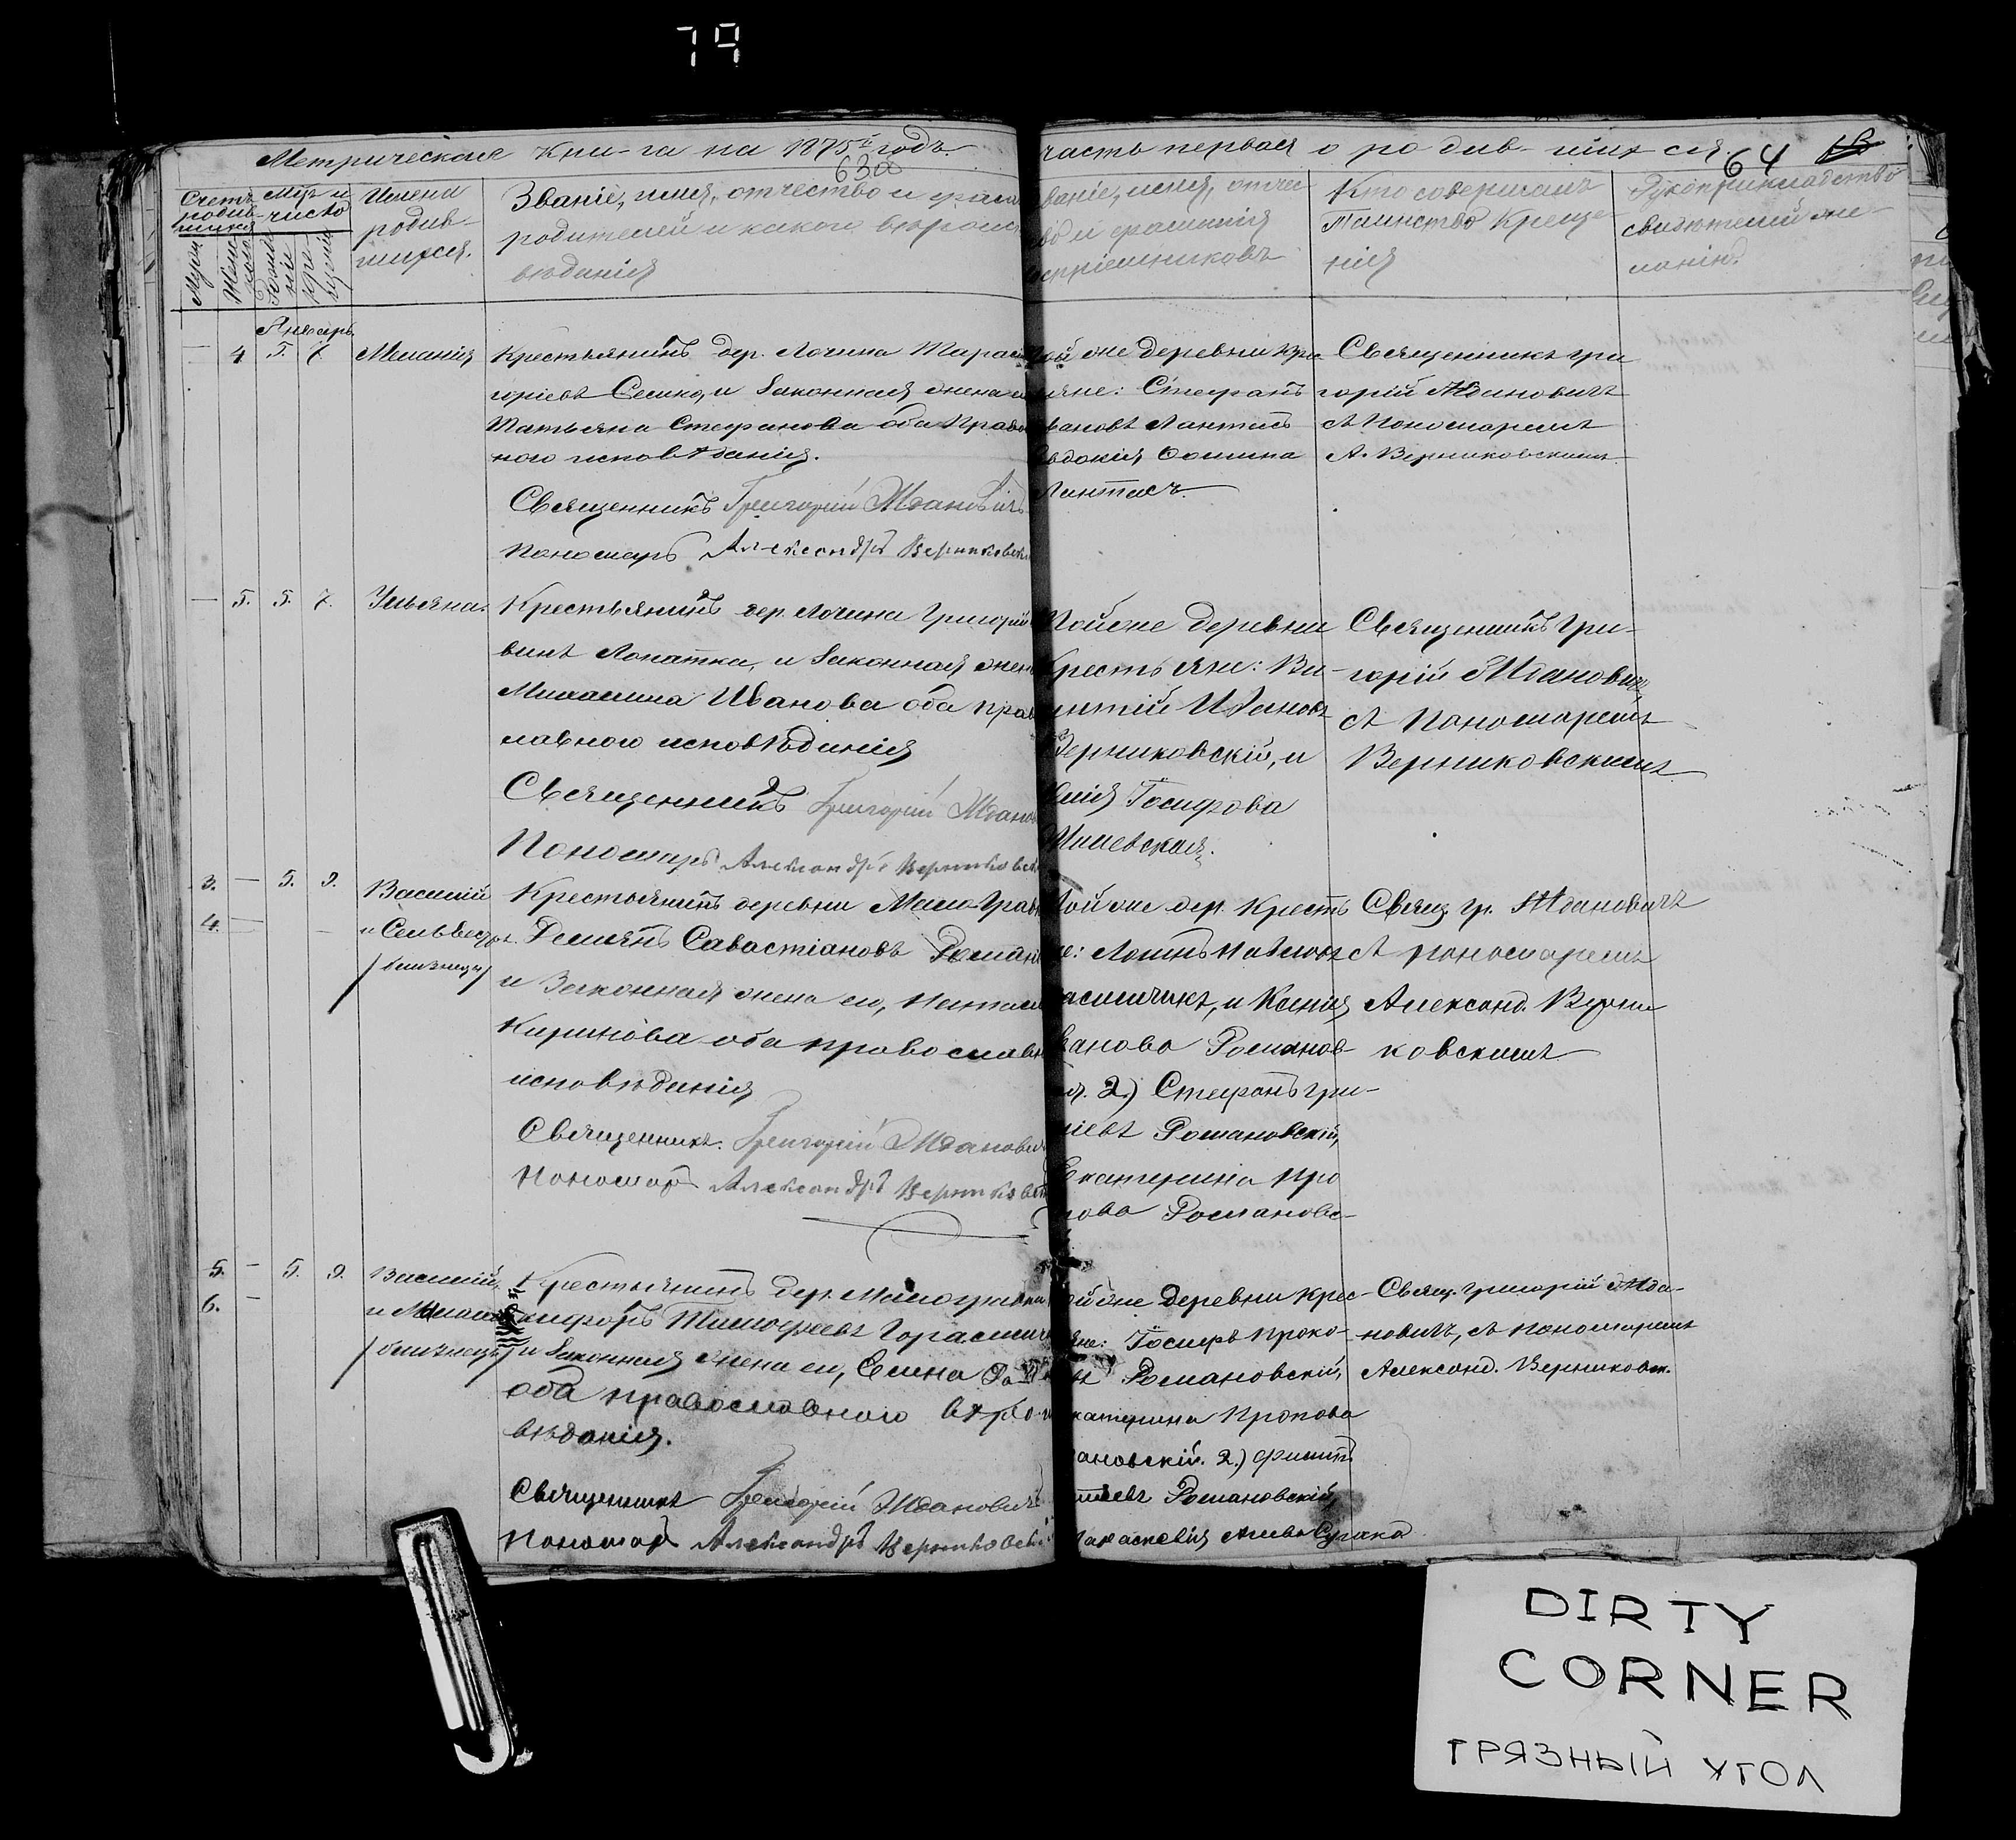 79
Метрическая книга на 1875й годъ.
часть первая о родив-шихся.
63об
64
Счетъ родив-шихся
Мужес
Женс-кого
Мѣс и число
Рожде-нія
кре-щенія
Имена родив-шихся.
Званіе, имя, отчество и фами
родителей и какого вѣроис
вѣданія
званіе, имя, отчес
во и фамилія
воспріемниковъ
Кто совершалъ
Таинство Креще-
нія
Рукоприкладство
свидѣтелей по же-
ланію.
Январь.
— 4 5. 7. Меланія
Крестьянинъ дер. Лочина Тарас
горіевъ Сенько, и законная жена е
Татьяна Стефанова оба Право
ного исповѣданія.
Священникъ Григорій Ждановичъ
Пономарь Александръ Вернковск
той же деревни кре
яне: Стефанъ
вановъ Лантас
Евдокія Фомина
Лантасъ.
Священникъ Гри
горій Ждановичъ
съ Пономаремъ
А. Верниковскимъ
— 5. 5. 7. Ульяна.
Крестьянинъ дер. Лочина Григорій
винъ Лопатка, и законная жен
Михалина Иванова оба прав
лавного исповѣданія
Священникъ Григорій Жданов
Пономарь Александръ Верниковск
Той же деревни
Крестьяне: Ви-
ентій Ивановъ
Верниковскій, и
Іосифова
Священникъ Гри-
горій Ждановичъ
съ Пономаремъ
Верниковскимъ
3. — 5. 9. Василій
4. — и Сельвестръ
/близнецы/
Крестьянинъ деревни Мало-Грав
Демянъ Савастіановъ Роман
и Законная жена его, Натал
Кирилова оба православн
исповѣданія
Священникъ. Григорій Жданович
Пономарь Александръ Верниковск
той же дер. Крестъ
Романов-
я. 2.) Стефанъ Гри-
ріевъ Романовскій,
Екатерина Про
пова Романовс-
Свящ. Гр. Ждановичъ
съ пономаремъ
Александ. Верни
ковскимъ
5. — 5. 9. Василій,
6. —
/близнецы/
Крестьянинъ дер. Малогравки
Тимофеевъ Гарасим
и законная жена его, Елена
оба православного вѣро-
вѣданія.
Священникъ Григорій Ждановичъ
Пономарь Александръ Верниковскі
той же деревни крес-
яне: Іосифъ Проко-
въ Романовскій,
катерина Пропова
ановскій. 2.) Филипъ
Романовскій,
Параскевія
Свящ. Григорій Жда-
новичъ, съ пономаремъ
Александ. Верниковск.
DIRTY
CORNER
ГРЯЗНЫЙ УГОЛ